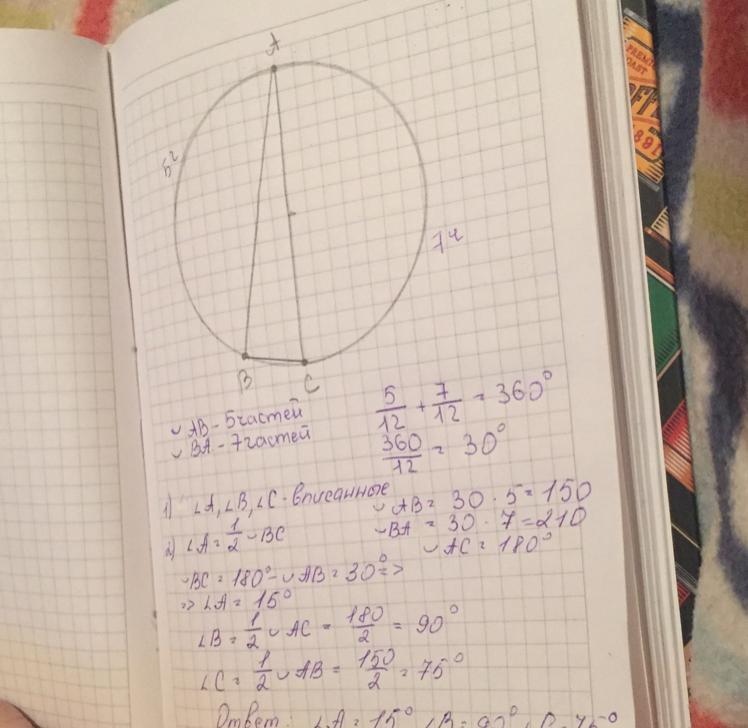 A
5ч
7ч
B
C
◡AB - 5 частей
◡BA - 7 частей
5/12 + 7/12 = 360°
360/12 = 30°
1) ∠A, ∠B, ∠C - вписанные
◡AB = 30 · 5 = 150
◡BA = 30 · 7 = 210
◡AC = 180°
2) ∠A = 1/2 ◡BC
◡BC = 180° - ◡AB = 30° =>
=> ∠A = 15°
∠B = 1/2 ◡AC = 180/2 = 90°
∠C = 1/2 ◡AB = 150/2 = 75°
Ответ: ∠A = 15° ∠B = 90° ∠C = 75°
1891